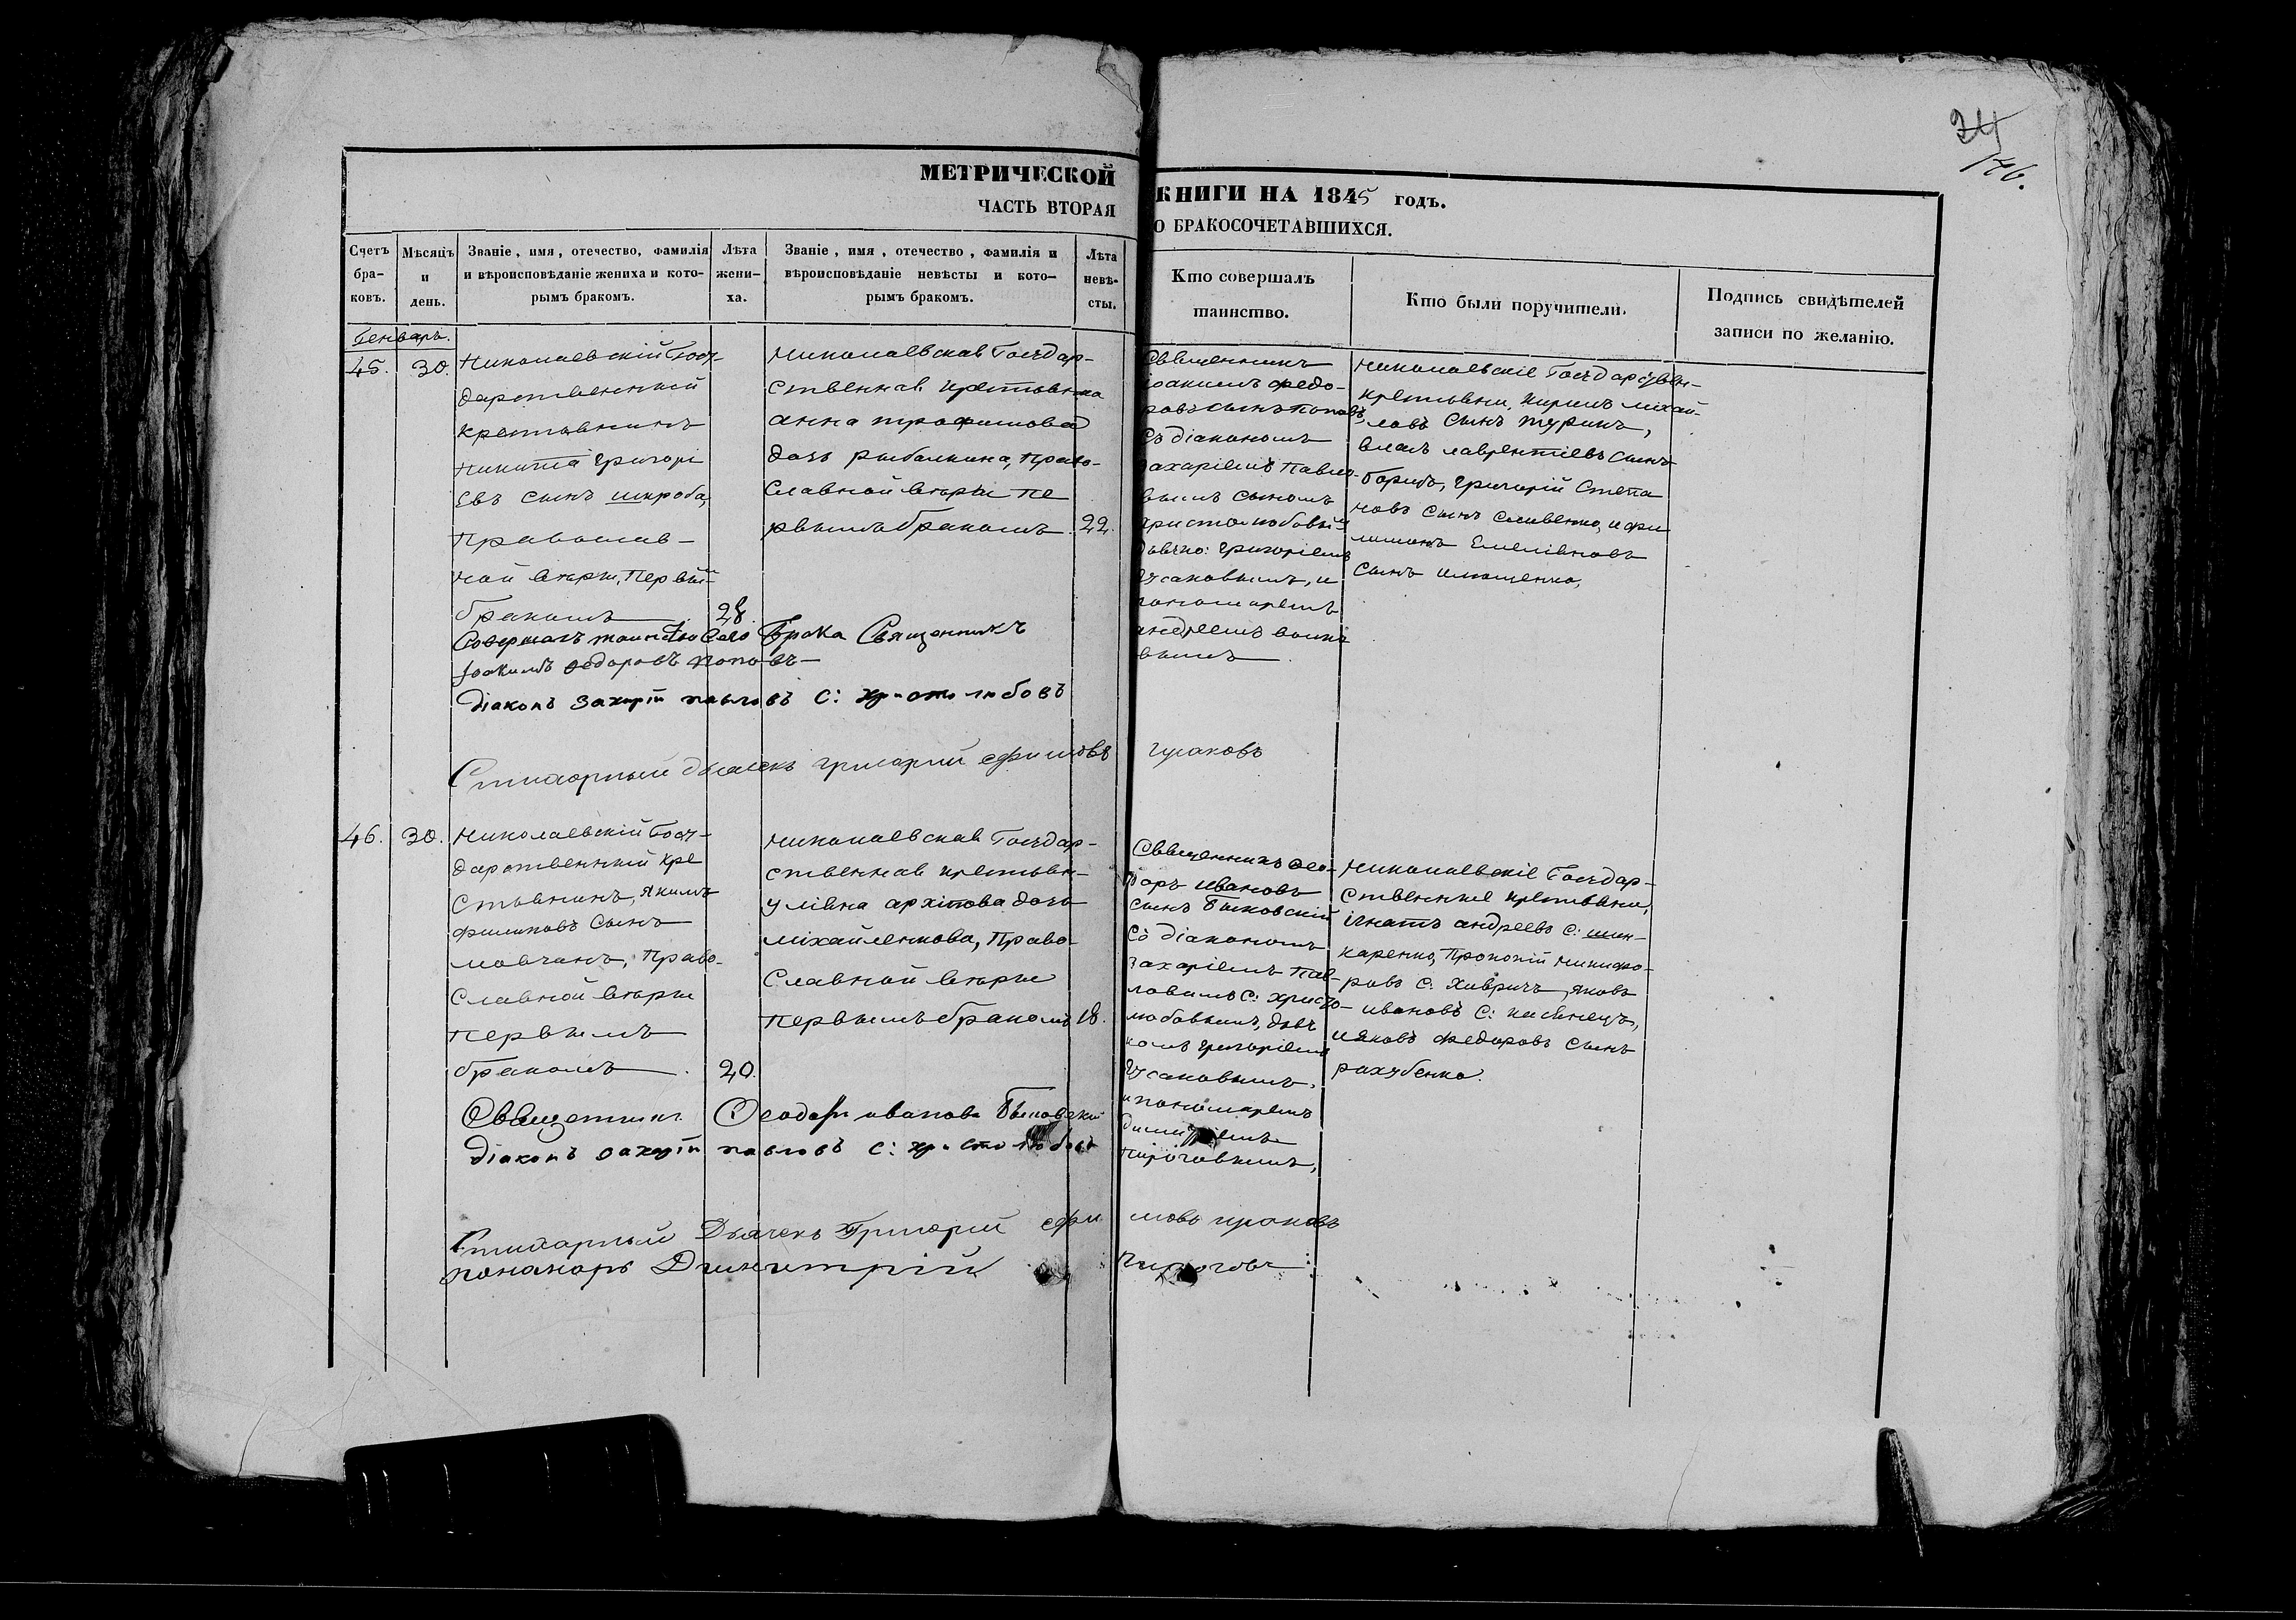 24
176.
МЕТРИЧЕСКОЙ КНИГИ НА 1845 годъ.
ЧАСТЬ ВТОРАЯ О БРАКОСОЧЕТАВШИХСЯ.
Счетъ
бра-
ковъ.
Мѣсяцъ
и
день.
Званіе, имя, отечество, фамилія
и вѣроисповѣданіе жениха и кото-
рымъ бракомъ.
Лѣта
жени-
ха.
Званіе, имя, отечество, фамилія и
вѣроисповѣданіе невѣсты и кото-
рымъ бракомъ.
Лѣта
невѣ-
сты.
Кто совершалъ
таинство.
Кто были поручители.
Подпись свидѣтелей
записи по желанію.
Генварь.
45.
30.
Николаевскій Госу-
дарственный
крестьянинъ
Никита Григорі
евъ сынъ шкроба,
Православ-
ной вѣры, Первым
бракомъ
28.
Николаевская Государ-
ственная крестьянка
анна трофимова
дочь рыбалкина, Право-
славной вѣры пе
рвымъ бракомъ
22.
Священникъ
іоакимъ федо-
ровъ сынъ Поповъ
Съ діакономъ
Захаріемъ Павло-
вымъ сыномъ
христолюбовым
дьячко: Григоріемъ
Гусаковымъ, и
пономаремъ
андреемъ
вымъ
Николаевскіе Государствен-
крестьяни, Кирилъ міхай-
ловъ сынъ турикъ,
власъ лаврентіевъ сынъ
Григорій Степа
новъ сынъ и фи
лимонъ Емеліяновъ
сынъ
Совершалъ таинство сего Брака Священникъ
Іоакимъ Федоровъ Поповъ
Діаконъ Захарій павловъ С: христолюбовъ
Стихарный дьячекъ григорий ефимовъ гусаковъ
46.
30.
Николаевскій Госу-
дарственный кре
стьянинъ, Якимъ
филиповъ сынъ
мовчанъ, Право-
славной вѣры
первымъ
бракомъ
20.
Николаевская Государ-
ственная крестьян-
уліяна архіпова дочь
міхайленкова, Право-
славной вѣры
первымъ бракомъ
18.
Священникъ Фео-
доръ ивановъ
сынъ Быковскій
Съ діакономъ
Захаріемъ Пав-
ловымъ С: христо-
любовымъ, дьяч
комъ григоріемъ
Гусаковымъ,
и пономаремъ
димитріемъ
Пироговымъ,
Николаевскіе Государ-
ственные крестьяни,
ігнатъ андреевъ С: шин-
каренко, Прокопій Никифо-
ровъ С: Хивричъ, яковъ
ивановъ С:
и яковъ федоровъ сынъ
рахубенко.
Священникъ Феодоръ ивановъ Быковскій
Діаконъ Захарій павловъ С: христолюбовъ
Стихарный Дьячекъ Григорій ефимовъ гусаковъ
понамарь Димитрій Пироговъ